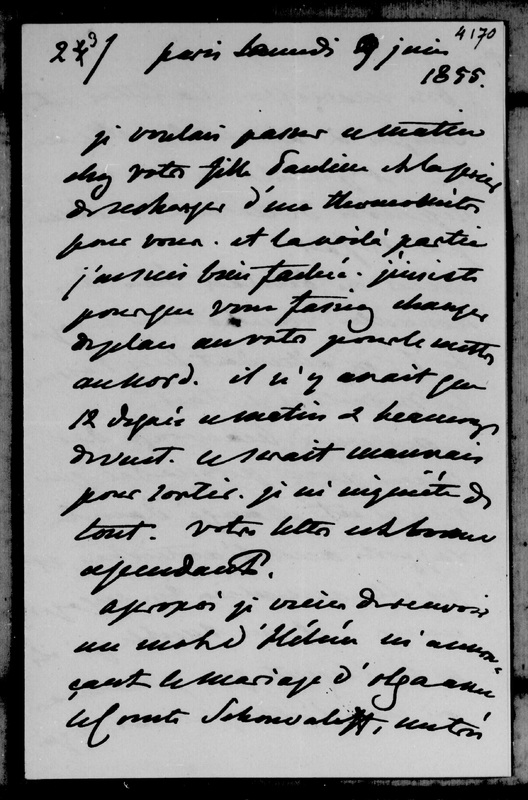 4170
2 paris Samedi 9 juin
1855.
je voulais passer ce matin
chez votre fille Pauline et la prier
de se charger d'un thermomètre
pour vous. et la voilà partie
j'en suis bien fachée. j'insiste
pour que vous fassiez changer
de place au votre pour le mettre
au nord. il n'y avait que
12 degrés ce matin & beaucoup
de vent. ce serait mauvais
pour sortir. je m'inquiète de
tout. votre lettre est bonne
cependant.
apropos je viens de recevoir
un mot d'Hélène m'annon-
çant le mariage d'olga avec
le Comte Schouvaloff, très